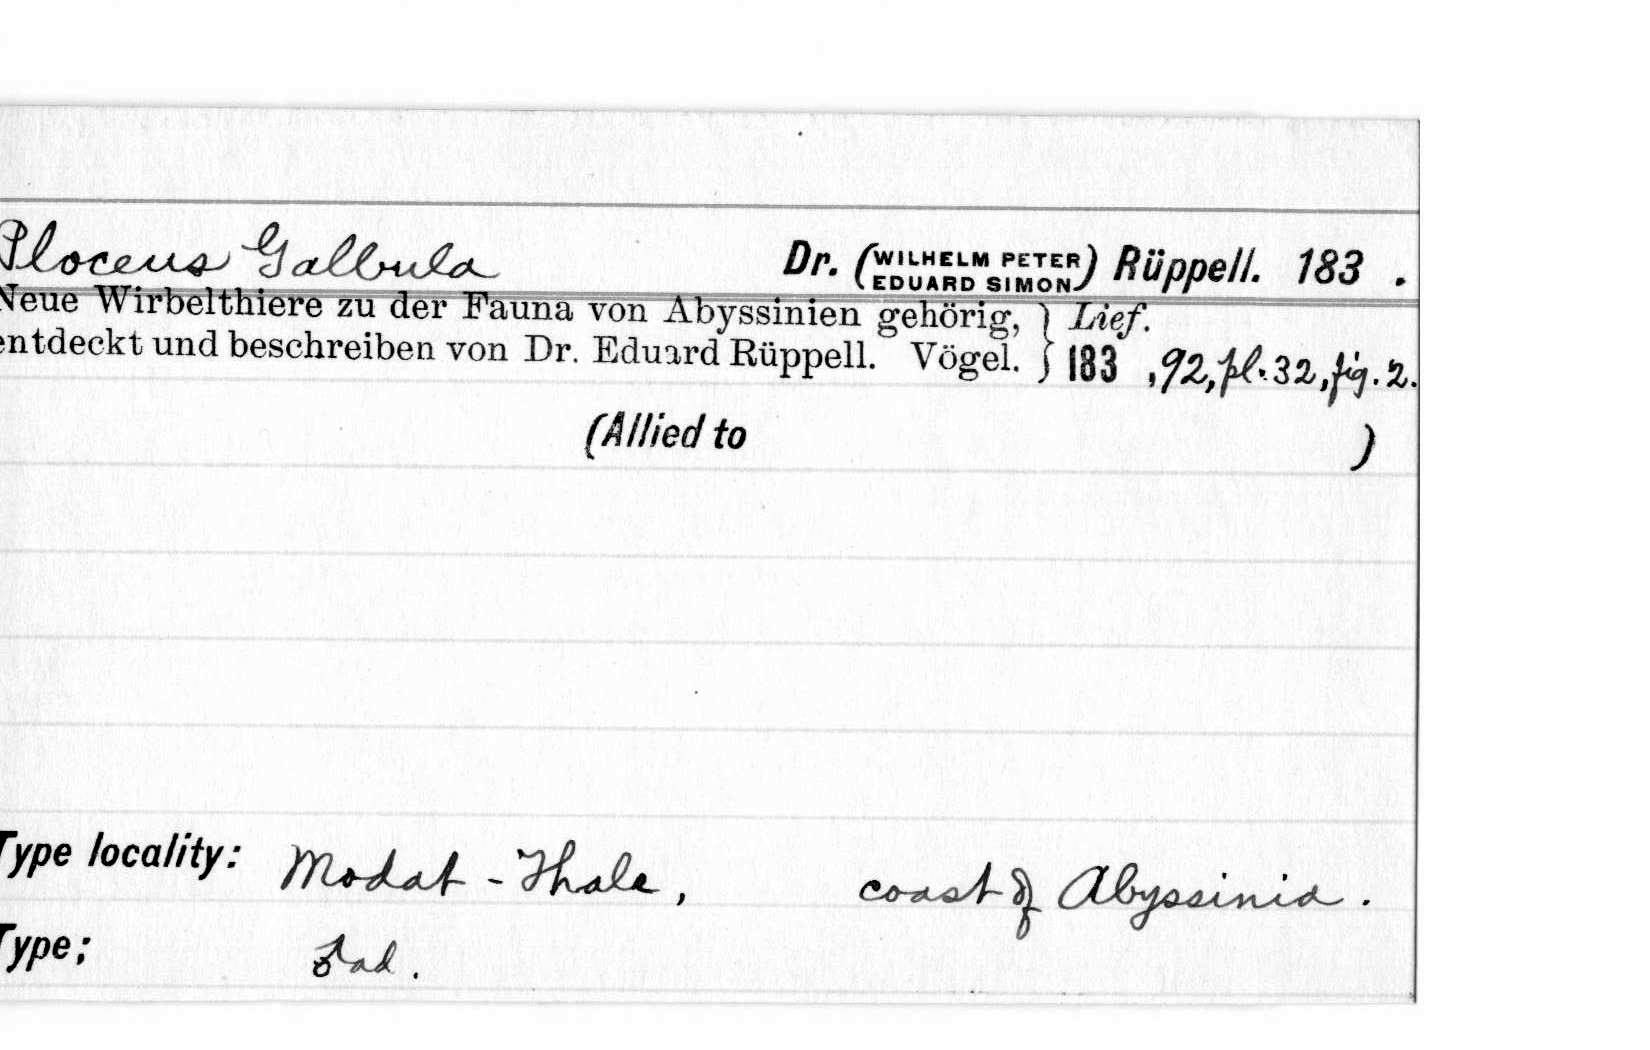 Ploceus Galbula Dr. (WILHELM PETER EDUARD SIMON) Rüppell. 183 .
Neue Wirbelthiere zu der Fauna von Abyssinien gehörig, } Lief.
entdeckt und beschreiben von Dr. Eduard Rüppell. Vögel. } 183 , 92, pl. 32, fig. 2.
(Allied to )
Type locality: Modat - Thale, coast of Abyssinia.
Type; ♂ ad.